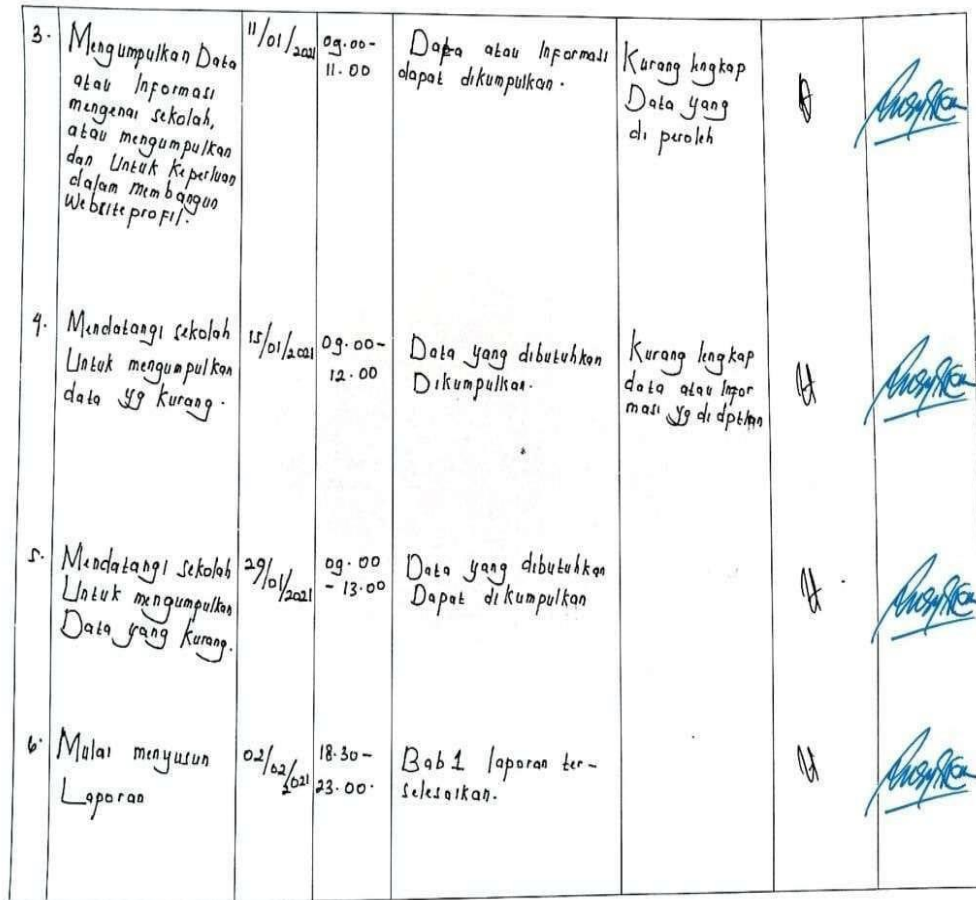 3.
Mengumpulkan Data
atau Informasi
mengenai sekolah,
atau mengumpulkan
dan Untuk Keperluan
dalam membangun
Website profil.
11/01/2021
09.00-
11.00
Data atau Informasi
dapat dikumpulkan.
Kurang lngkap
Data yang
di peroleh
4.
Mendatangi sekolah
Untuk mengumpulkan
data yg kurang.
15/01/2021
09.00-
12.00
Data yang dibutuhkan
Dikumpulkan.
Kurang lengkap
data atau Infor
masi yg didptkan
5.
Mendatangi sekolah
Untuk mengumpulkan
Data yang kurang.
29/01/2021
09.00
- 13.00
Data yang dibutuhkan
Dapat dikumpulkan
6.
Mulai menyusun
Laporan
02/02/2021
18.30-
23.00.
Bab 1 laporan ter-
selesaikan.